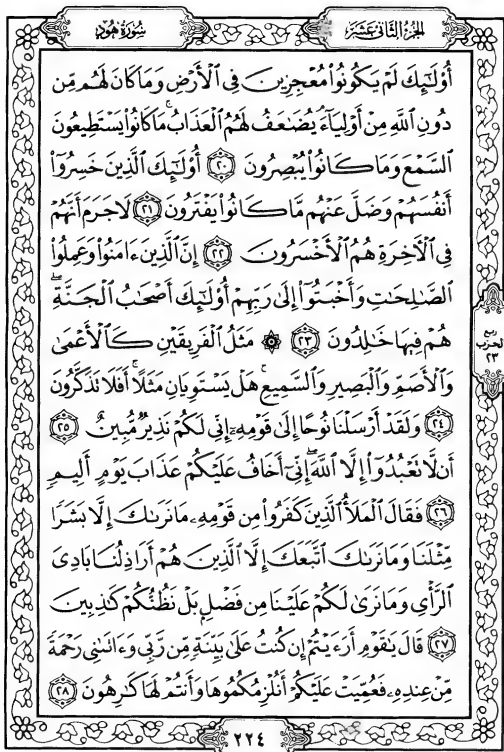 الجزء الثاني عشر
سورة هود
أُوْلَٰٓئِكَ لَمْ يَكُونُوا۟ مُعْجِزِينَ فِى ٱلْأَرْضِ وَمَا كَانَ لَهُم مِّن
دُونِ ٱللَّهِ مِنْ أَوْلِيَآءَ يُضَٰعَفُ لَهُمُ ٱلْعَذَابُ مَا كَانُوا۟ يَسْتَطِيعُونَ
ٱلسَّمْعَ وَمَا كَانُوا۟ يُبْصِرُونَ ٢٠ أُوْلَٰٓئِكَ ٱلَّذِينَ خَسِرُوٓا۟
أَنفُسَهُمْ وَضَلَّ عَنْهُم مَّا كَانُوا۟ يَفْتَرُونَ ٢١ لَا جَرَمَ أَنَّهُمْ
فِى ٱلْأَخِرَةِ هُمُ ٱلْأَخْسَرُونَ ٢٢ إِنَّ ٱلَّذِينَ ءَامَنُوا۟ وَعَمِلُوا۟
ٱلصَّٰلِحَٰتِ وَأَخْبَتُوٓا۟ إِلَىٰ رَبِّهِمْ أُوْلَٰٓئِكَ أَصْحَٰبُ ٱلْجَنَّةِ ۖ
هُمْ فِيهَا خَٰلِدُونَ ٢٣ ۞ مَثَلُ ٱلْفَرِيقَيْنِ كَٱلْأَعْمَىٰ
وَٱلْأَصَمِّ وَٱلْبَصِيرِ وَٱلسَّمِيعِ ۚ هَلْ يَسْتَوِيَانِ مَثَلًا ۚ أَفَلَا تَذَكَّرُونَ
٢٤ وَلَقَدْ أَرْسَلْنَا نُوحًا إِلَىٰ قَوْمِهِۦٓ إِنِّى لَكُمْ نَذِيرٌ مُّبِينٌ ٢٥
أَن لَّا تَعْبُدُوٓا۟ إِلَّا ٱللَّهَ ۖ إِنِّىٓ أَخَافُ عَلَيْكُمْ عَذَابَ يَوْمٍ أَلِيمٍ
٢٦ فَقَالَ ٱلْمَلَأُ ٱلَّذِينَ كَفَرُوا۟ مِن قَوْمِهِۦ مَا نَرَىٰكَ إِلَّا بَشَرًا
مِّثْلَنَا وَمَا نَرَىٰكَ ٱتَّبَعَكَ إِلَّا ٱلَّذِينَ هُمْ أَرَاذِلُنَا بَادِىَ
ٱلرَّأْىِ وَمَا نَرَىٰ لَكُمْ عَلَيْنَا مِن فَضْلٍۭ بَلْ نَظُنُّكُمْ كَٰذِبِينَ
٢٧ قَالَ يَٰقَوْمِ أَرَءَيْتُمْ إِن كُنتُ عَلَىٰ بَيِّنَةٍ مِّن رَّبِّى وَءَاتَىٰنِى رَحْمَةً
مِّنْ عِندِهِۦ فَعُمِّيَتْ عَلَيْكُمْ أَنُلْزِمُكُمُوهَا وَأَنتُمْ لَهَا كَٰرِهُونَ ٢٨
ربع
الحزب
٢٣
٢٢٤